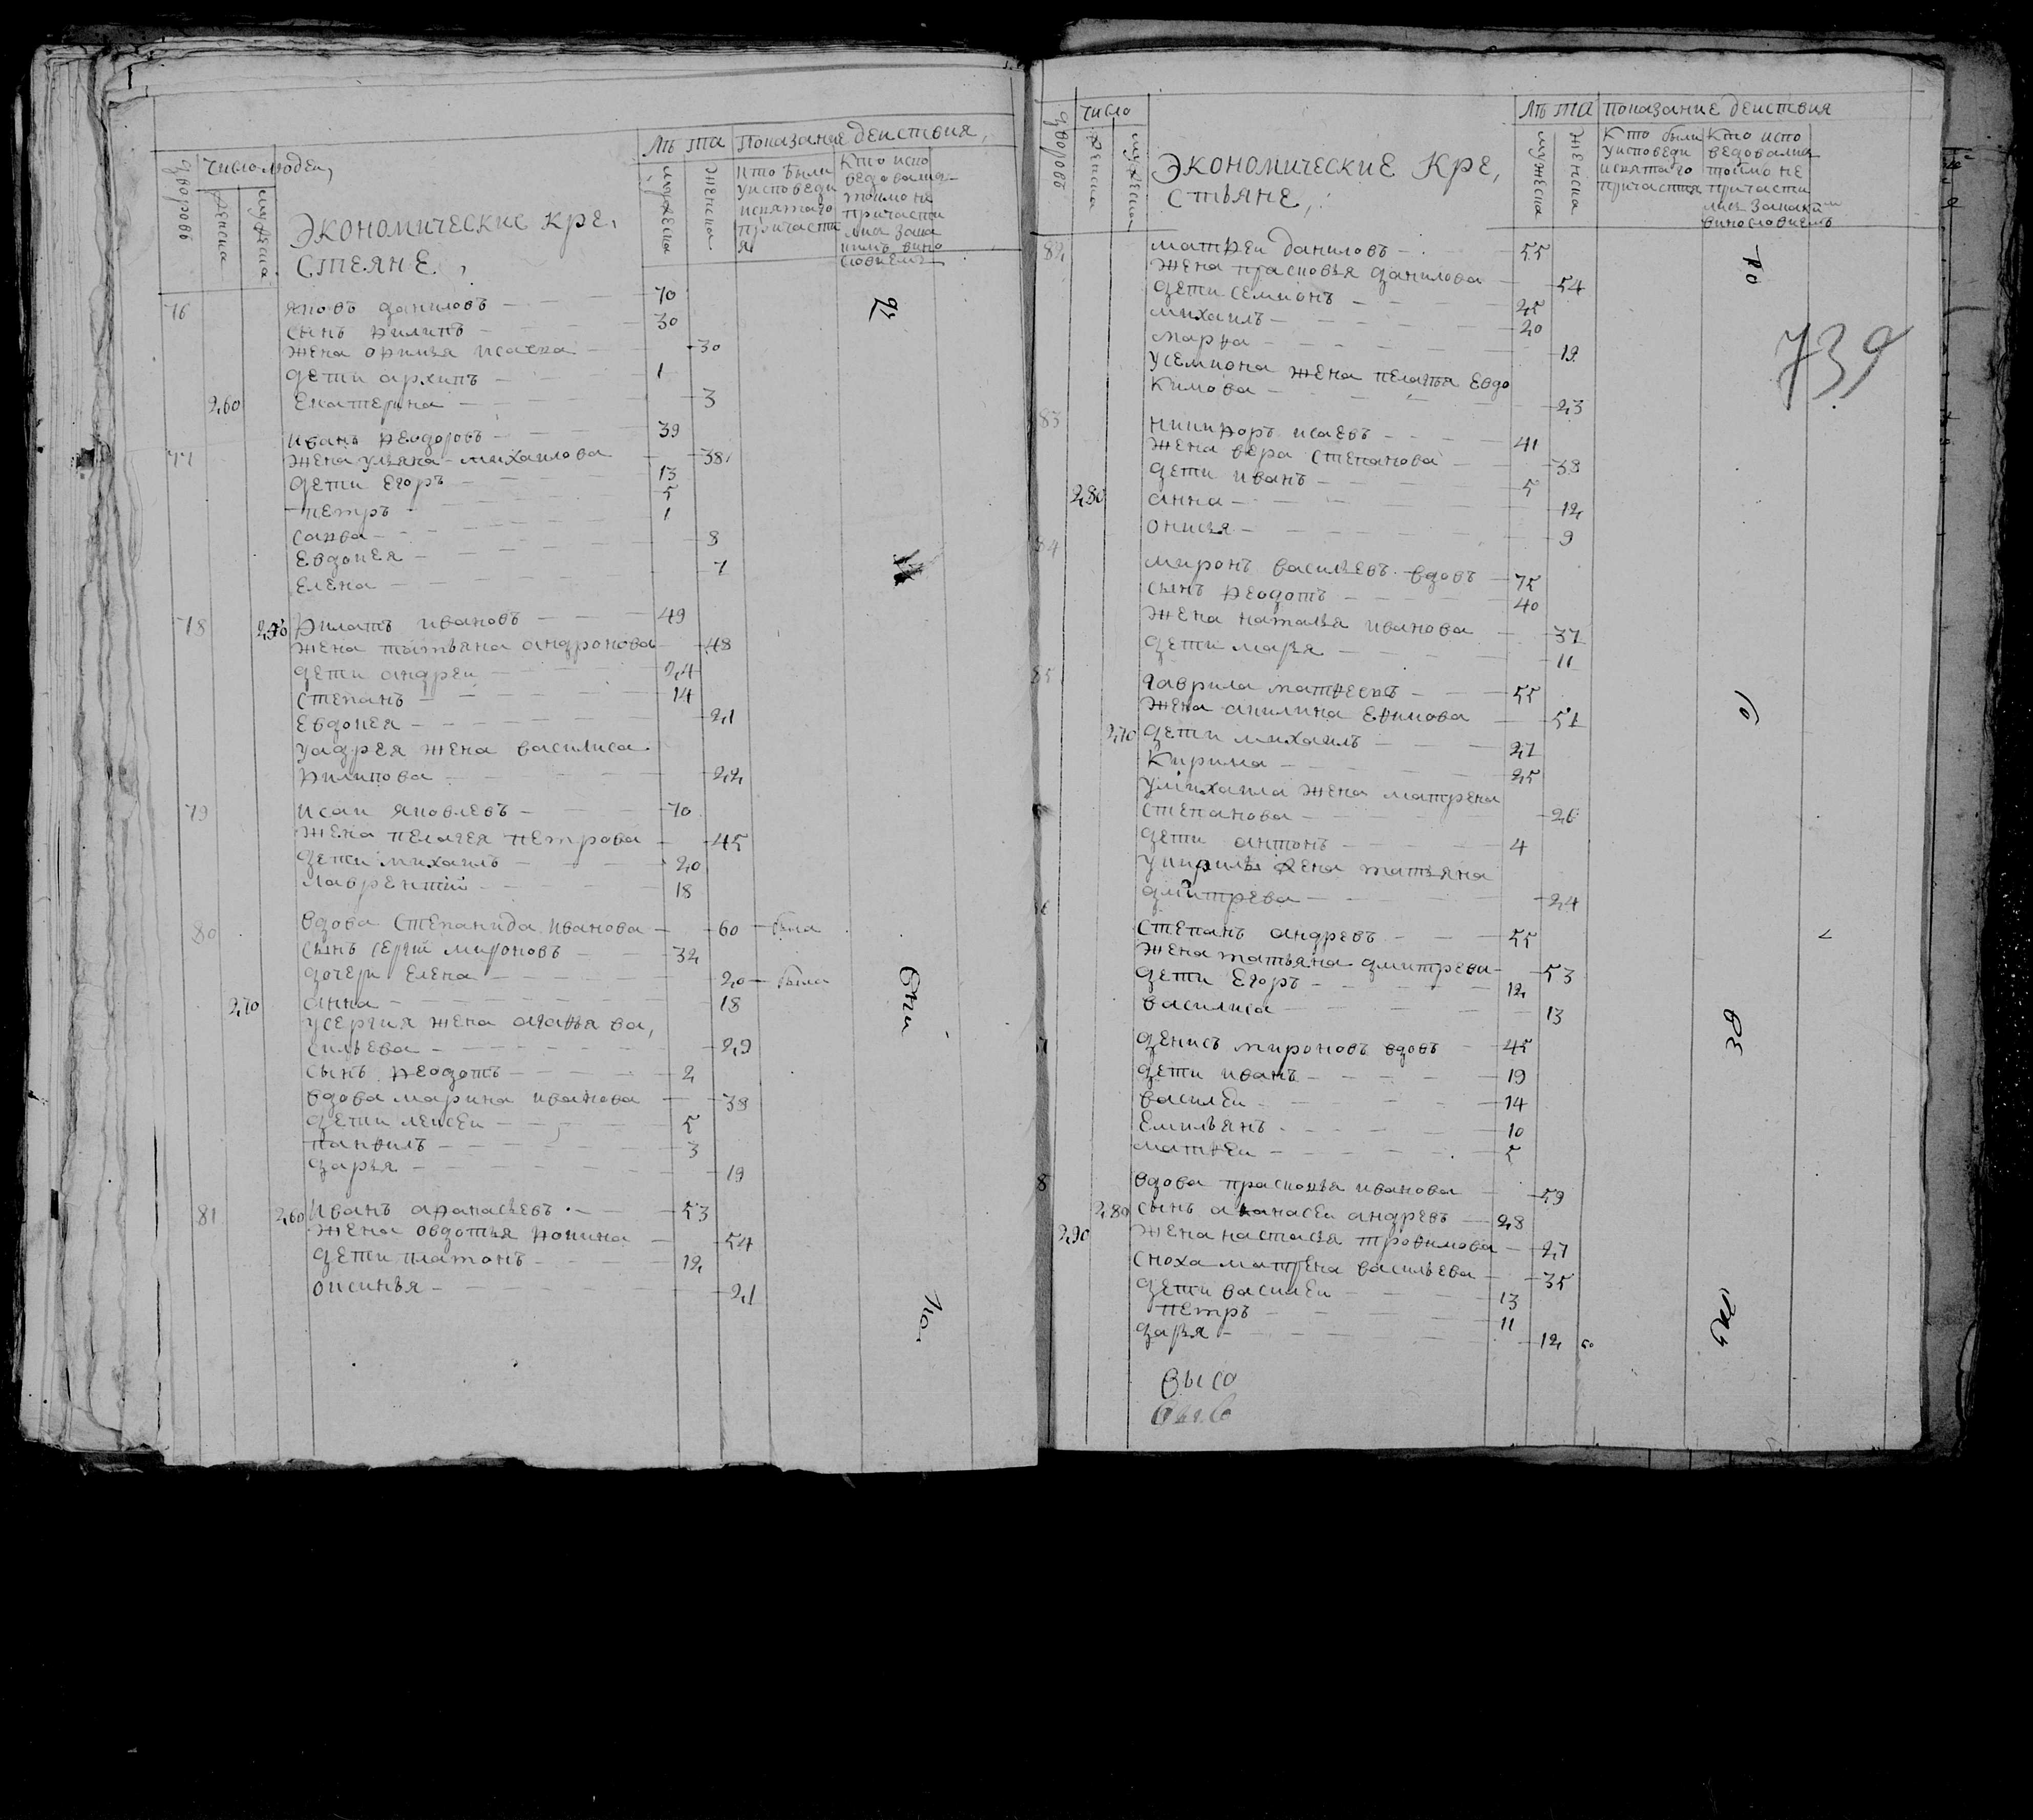 Лѣта Показание деиствия,
Число людеи,
дворовъ
женска
мужеска
Экономические кре,
стеяне,
мужеска
женска
кто были
уисповеди
исвятаго
причасти
я
Кто испо
ведовалис
тоймо не
причасти
лис зака
кимъ вино
словиемъ
76 яковъ даниловъ 70
сынъ филипъ 30
жена офимья исаева 30
дети архипъ 1
260 Екатерина 3
77 иванъ феодоровъ 39
жена ульяна михаилова 38
дети Егоръ 13
петръ 5
савва 1
Евдокея 8
Елена 7
78 филатъ ивановъ 49
жена татьяна андронова 48
дети андреи 24
степанъ 14
Евдокея 21
жена василиса
филипова 22
79 исаи яковлевъ 70
жена пелагея петрова 45
дети михаилъ 20
лаврентии 18
80 вдова Степанида иванова 60 была
сынъ сергии мироновъ 32
дочери Елена 20 была
270 анна 18
усергия жена агафья ва,
сильева 29
сынъ феодотъ 2
вдова марина иванова 38
дети алексеи 5
панфилъ 3
дарья 19
81 260 иванъ афанасьевъ 53
жена овдотья фокина 54
дети платонъ 12
оксинья 21
Число
Лѣта показание деиствия
дворовъ
женска
мужеска
Экономические Кре,
стьяне,
мужеска
женска
Кто были
уисповеди
исвятаго
причастия
Кто испо
ведовалис
тоймо не
причасти
лис закаким
винословиемъ
739
82 матфеи даниловъ 55
жена прасковья данилова 54
дети семионъ 25
михаилъ 20
марфа 19
усемиона жена пелагья Евдо
кимова 23
83 никифоръ исаевъ 41
жена вера степанова 38
дети иванъ 5
280 анна 12
онисья 9
84 миронъ васильевъ вдовъ 75
сынъ феодотъ 40
жена наталья иванова 37
дети марья 11
85 гаврила матвеевъ 55
жена акилина Ефимова 51
270 дети михаилъ 27
Кирила 25
умихаила жена матрена
степанова 26
дети антонъ 4
укирилы жена татьяна
дмитрева 24
86 степанъ андревъ 55
жена татьяна дмитрева 53
дети Егоръ 12
василиса 13
7 денисъ мироновъ вдовъ 45
дети иванъ 19
василеи 14
Емильянъ 10
матфеи 5
8 вдова прасковья иванова 59
280 сынъ афанасеи андревъ 28
290 жена настасья трофимова 27
сноха матрена васильева 35
дети василеи 13
петръ 11
дарья 12